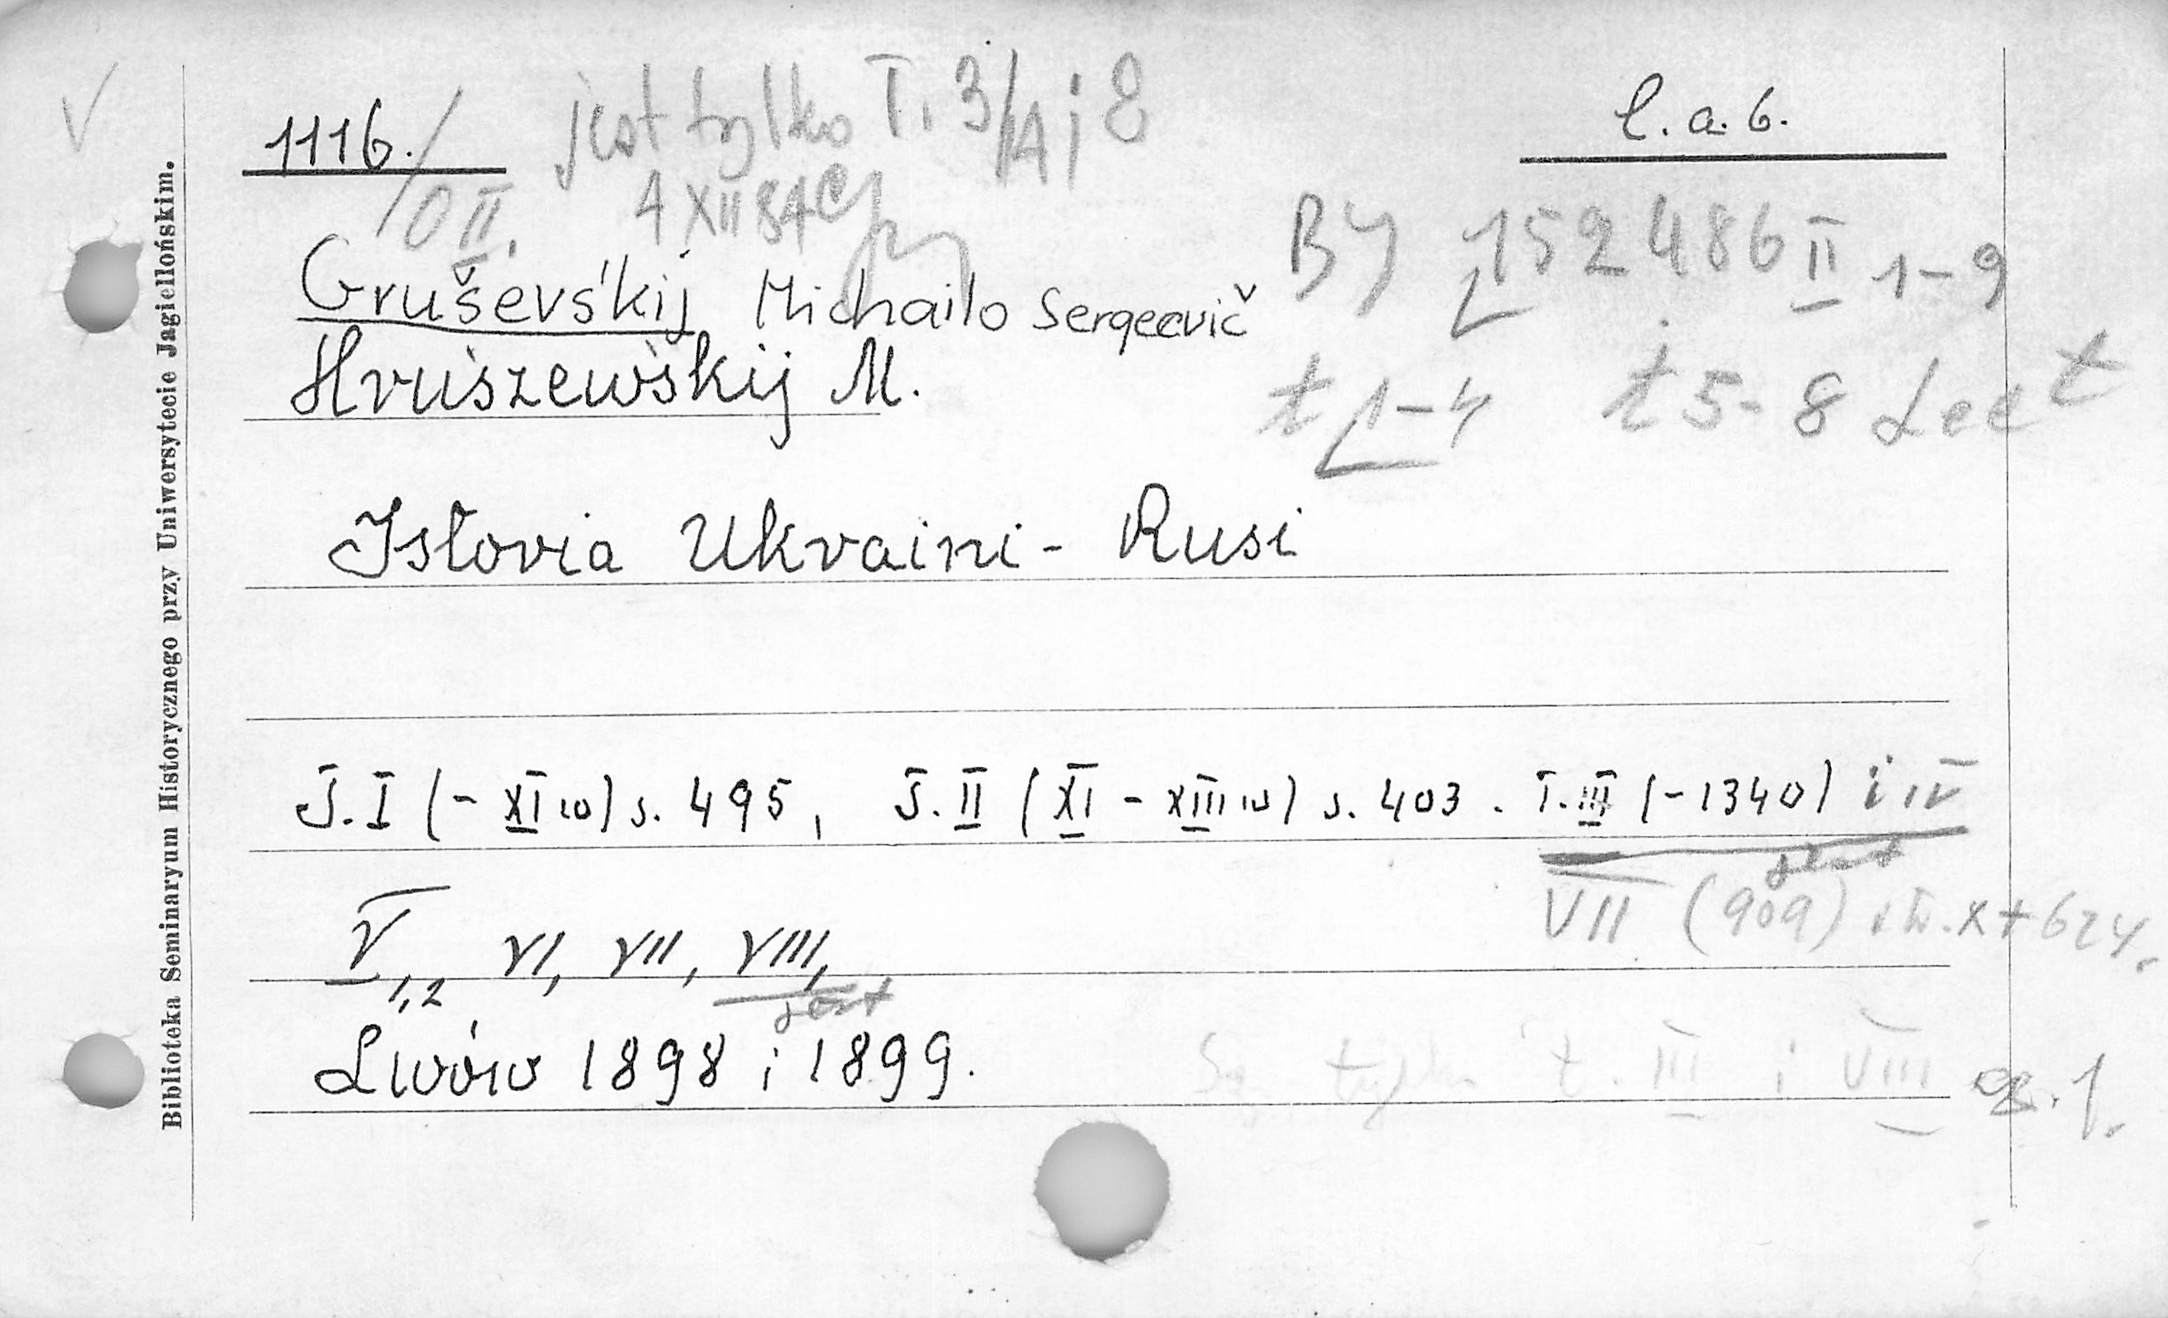 V
jest tylko T. 3/1A i 8
1116./OII.
4 XII 84
l.a.6.
BJ 152486 II 1-9
Gruševśkij Michailo Sergeevič
Hruiszewśkij M.
t 1-4 t 5-8 Lect
Istoria Ukraini - Rusi
T.I (- XI w) s. 495, T.II (XI - XIII w) s. 403. T.III (-1340) i IV
jest
VII (909) st. X+624.
V 1,2 VI, VII, VIII,
jest
Lwów 1898 i 1899.
Są tylko t. III i VIII cz. 1.
Biblioteka Seminaryum Historycznego przy Uniwersytecie Jagiellońskim.